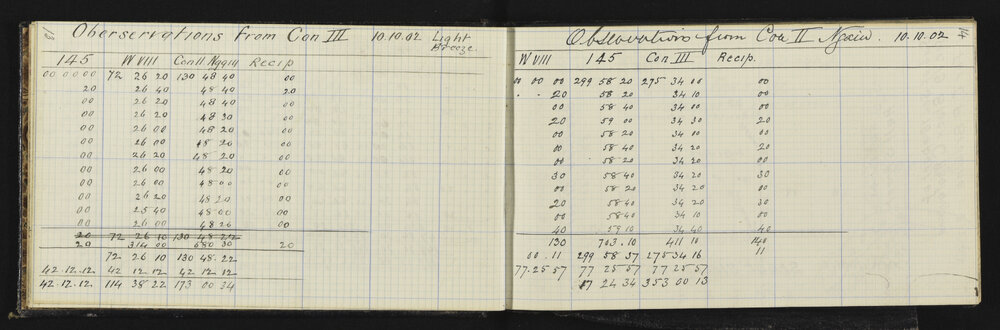 13
Oberservations from Con III 10.10.02 Light Breeze
145 W VIII Con II Ngaiu Recip
00 00 00 72 26 20 130 48 40 00
20 26 40 48 40 20
00 26 20 48 40 00
00 26 20 48 30 00
00 26 00 48 20 00
00 26 00 48 20 00
00 26 20 48 20 00
00 26 00 48 20 00
00 26 00 48 00 00
00 26 20 48 20 00
00 25 40 48 00 00
00 26 00 48 20 00
20 72 26 10 130 48 22
20 314 00 680 30 20
72 26 10 130 48 22
42.12.12. 42 12 12 42 12 12
42.12.12. 114 38 22 173 00 34
14
Observations from Con II Ngaiu. 10.10.02
W VIII 145 Con III Recip.
00 00 00 299 58 20 275 34 00 00
" " 20 58 20 34 10 00
00 58 40 34 00 00
20 59 00 34 30 20
00 58 20 34 00 00
00 58 40 34 20 20
00 58 20 34 20 00
30 58 40 34 20 30
00 58 20 34 00 00
20 58 40 34 20 30
00 58 40 34 10 00
40 59 10 34 40 40
130 703.10 411 0 140
00.11 299 58 37 275 34 16 11
77.25 57 77 25 57 77 25 57
17 24 34 353 00 13